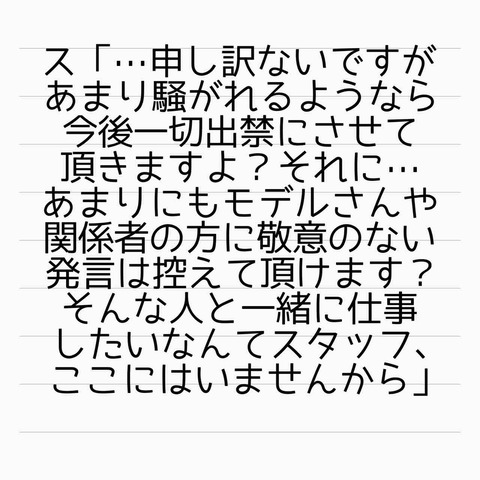 ス「…申し訳ないですが
あまり騒がれるようなら
今後一切出禁にさせて
頂きますよ？それに…
あまりにもモデルさんや
関係者の方に敬意のない
発言は控えて頂けます？
そんな人と一緒に仕事
したいなんてスタッフ、
ここにはいませんから」